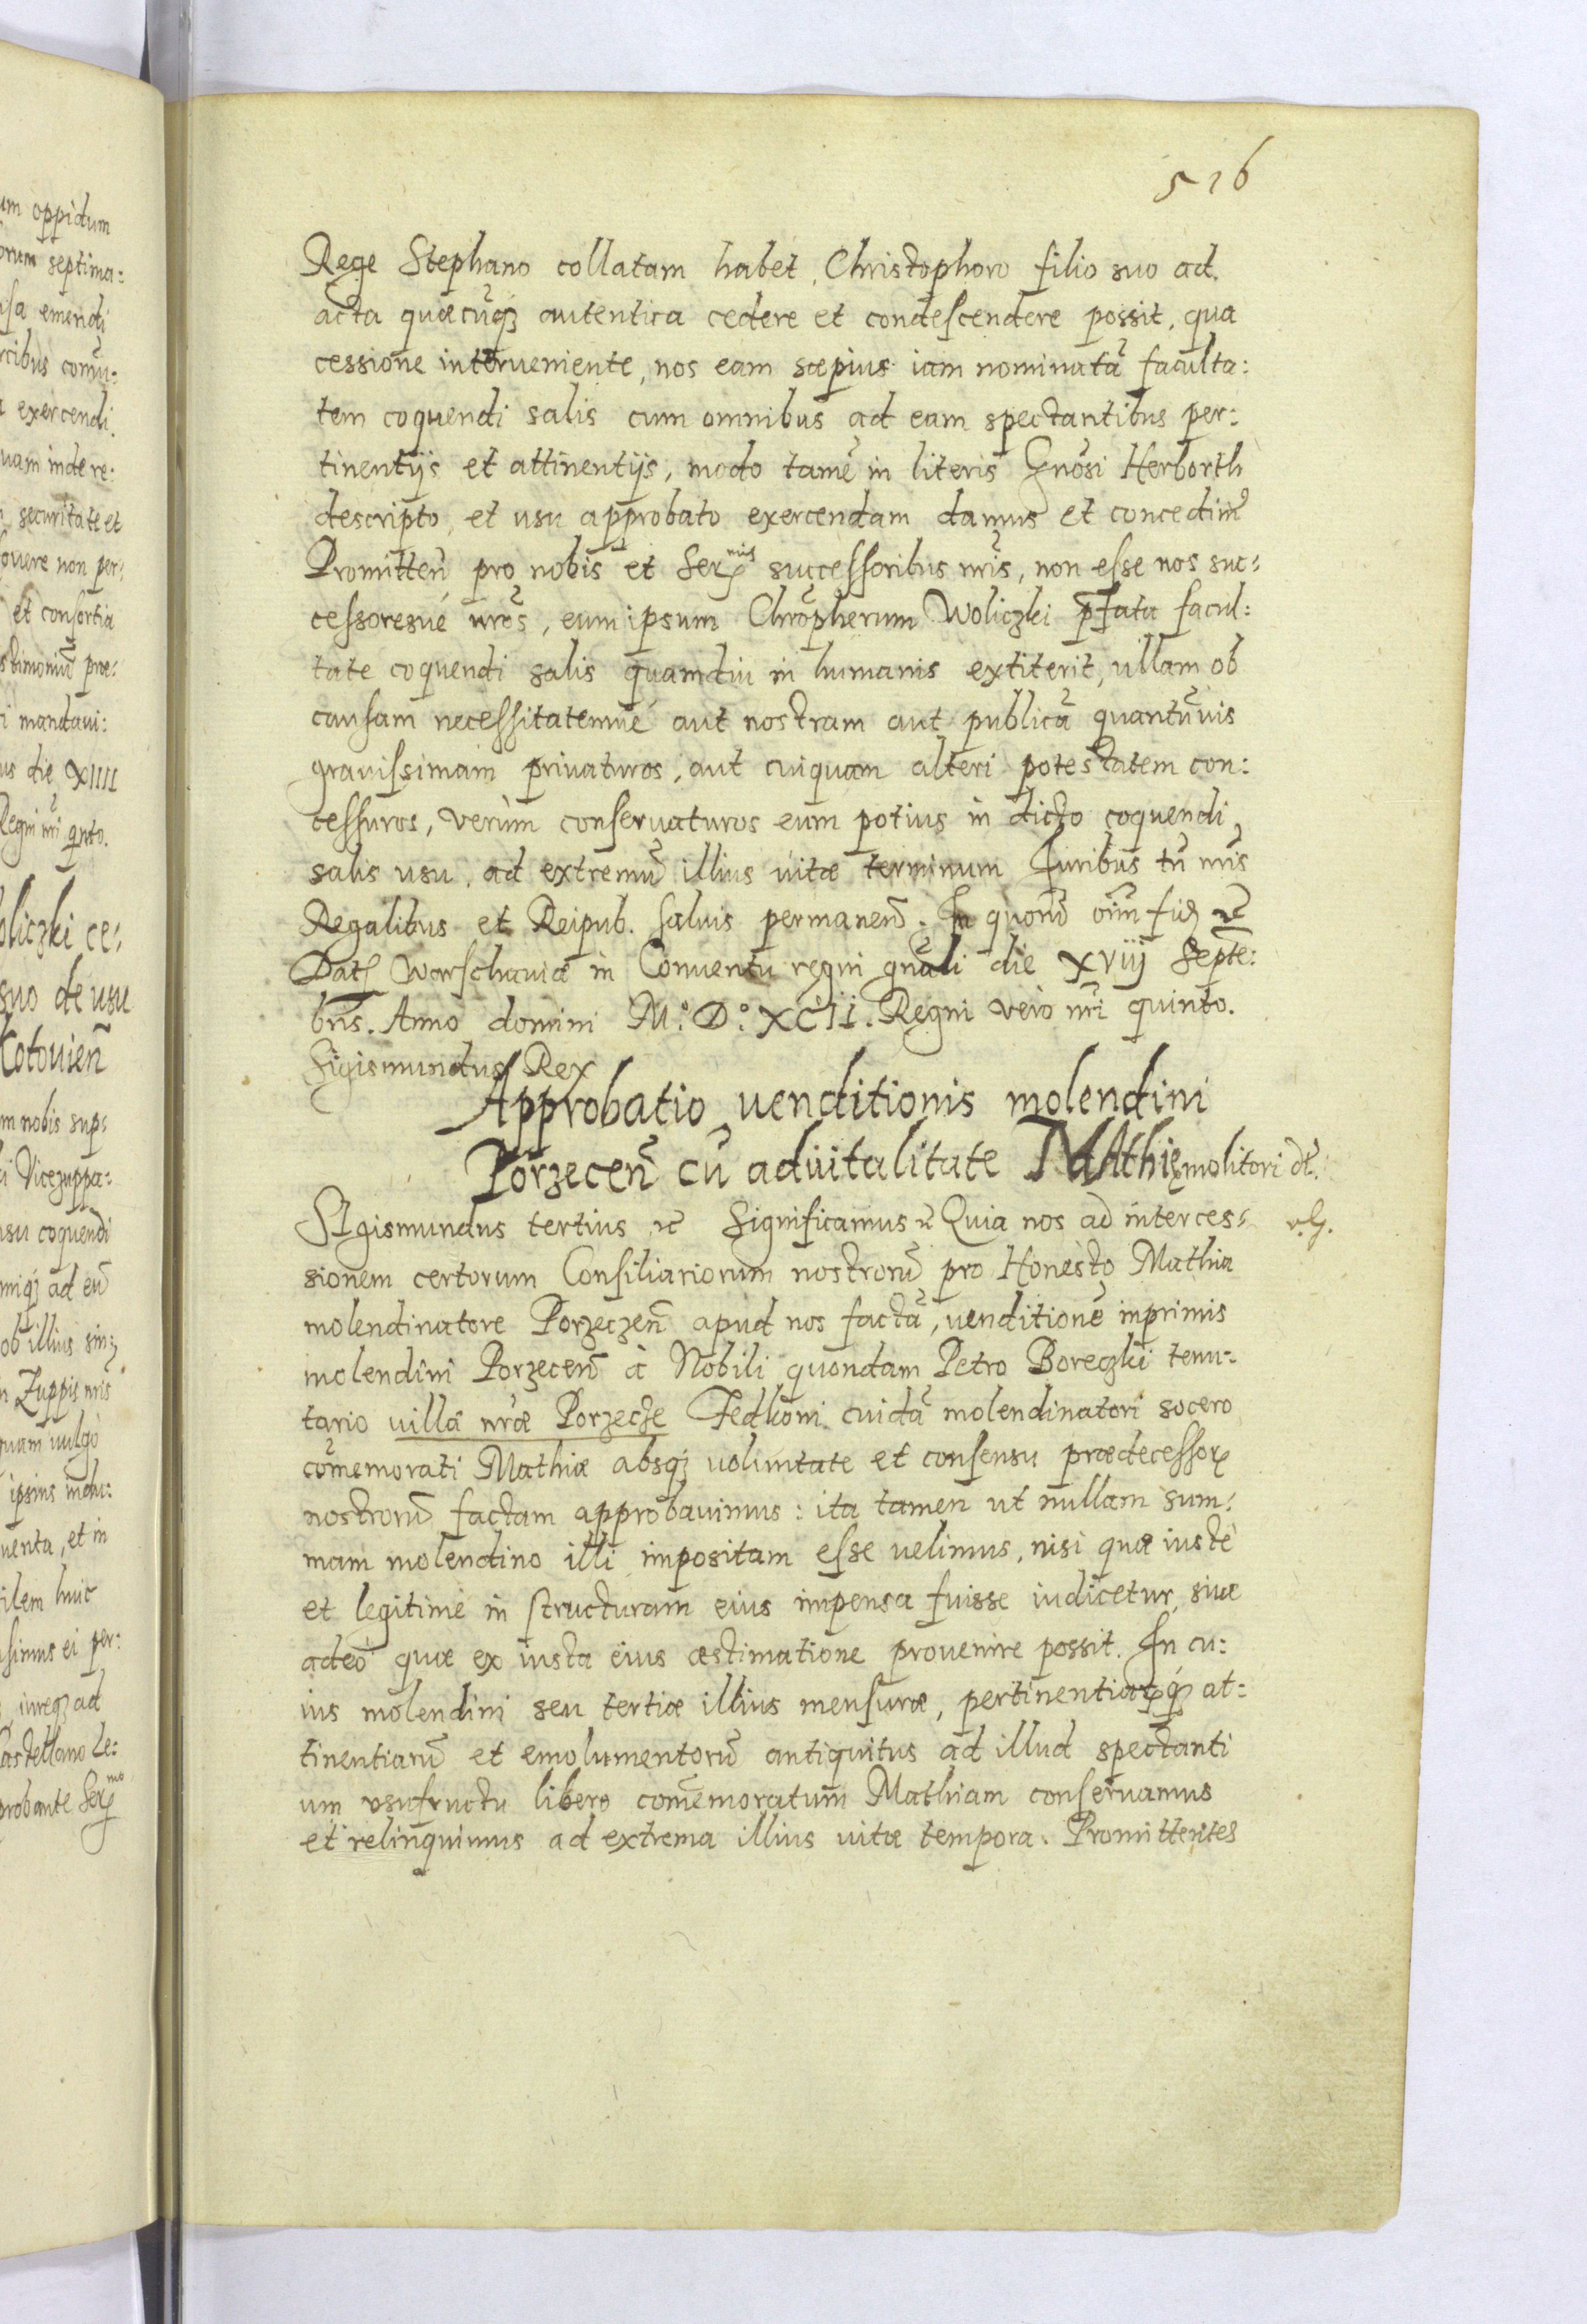 516
Rege Stephano collatam habet, Christophoro filio suo ad
acta quæcũq; autentica cedere et condescendere possit, qua
cessione interueniente, nos eam sæpius iam nominatã faculta:
tem coquendi salis cum omnibus ad eam spectantibus per:
tinentijs et attinentijs, modo tamẽ in literis Gnosi Herborth
descripto, et usu approbato exercendam damus et concedim9
Promitteñ pro nobis et Ser. mis successoribus nris, non esse nos suc:
cessoresué nros, eum ipsum Chropherum Woliczki pfata facul:
tate coquendi salis quamdiu in humanis extiterit, ullam ob
causam necessitatemué aut nostram aut publicã quantũuis
grauissimam priuaturos, aut cuiquam alteri potestatem con:
cessuros, verùm conseruaturos eum potius in dicto coquendi
salis usu, ad extremũ illius uitæ terminum Juribus tñ nris
Regalibus et Reipub. saluis permaneñ. In quorũ oim fid
Dat Warschauiæ in Conuentu regni gnali die XViij Septe:
bris. Anno domini M.° D.° XCII. Regni vero nri quinto.
Sigismundus Rex
Approbatio uenditionis molendini
Porzeceñ cũ aduitalitate MAthię molitori
SIgismundus tertius Significamus Quia nos ad interces:
sionem certorum Consiliariorum nostrorũ pro Honesto Mathia
molendinatore Porzeczeñ apud nos factã, uenditionẽ inprimis
molendini Porzeceñ à Nobili quondam Petro Boreczki tenu:
tario uillæ nræ Porzecze Fedkoni cuidã molendinatori socero
comẽmorati Mathiæ absq; voluntate et consensu prædecessor
nostrorũ factam approbauimus: ita tamen ut nullam sum:
mam molendino illi impositam esse uelimus, nisi quæ iustè
et legitimè in structuram eius impensa fuisse iudicetur, siue
adeò quæ ex iusta eius æstimatione prouenire possit. In cu:
ius molendini seu tertiæ illius mensuræ, pertinentiarq; at:
tinentiarũ et emolumentorũ antiquitus ad illud spectanti
um usufructu libero comẽmoratum Mathiam conseruamus
et relinquimus ad extrema illius uitæ tempora. Promittentes